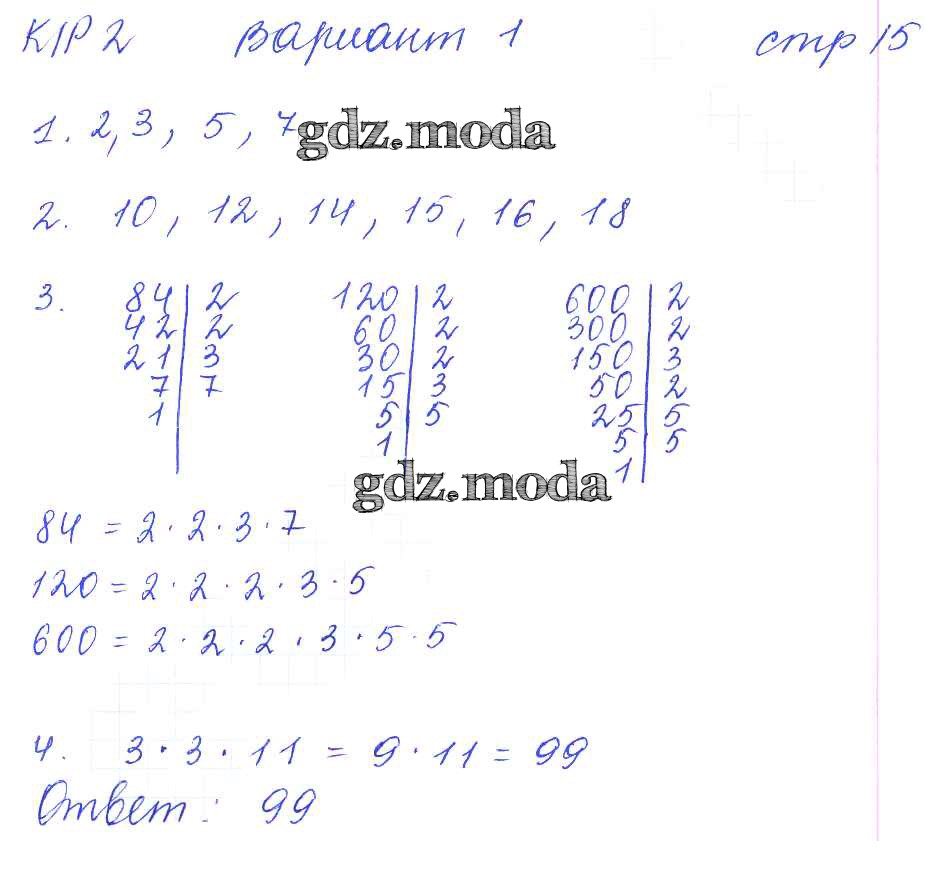 К/Р 2 Вариант 1 стр 15
1. 2, 3, 5, 7
gdz.moda
2. 10, 12, 14, 15, 16, 18
3. 84 | 2 120 | 2 600 | 2
42 | 2 60 | 2 300 | 2
21 | 3 30 | 2 150 | 3
7 | 7 15 | 3 50 | 2
1 | 5 | 5 25 | 5
1 | 5 | 5
1 |
gdz.moda
84 = 2 · 2 · 3 · 7
120 = 2 · 2 · 2 · 3 · 5
600 = 2 · 2 · 2 · 3 · 5 · 5
4. 3 · 3 · 11 = 9 · 11 = 99
Ответ: 99